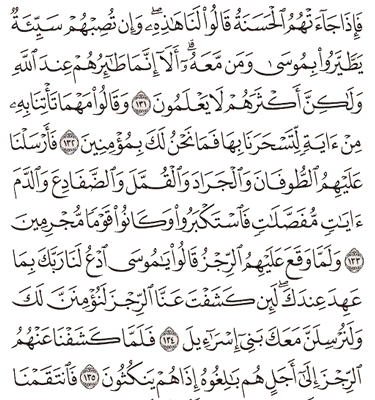 فَإِذَا جَآءَتْهُمُ ٱلْحَسَنَةُ قَالُوا۟ لَنَا هَٰذِهِۦ ۖ وَإِن تُصِبْهُمْ سَيِّئَةٌ
يَطَّيَّرُوا۟ بِمُوسَىٰ وَمَن مَّعَهُۥٓ ۗ أَلَآ إِنَّمَا طَٰٓئِرُهُمْ عِندَ ٱللَّهِ
وَلَٰكِنَّ أَكْثَرَهُمْ لَا يَعْلَمُونَ ١٣١ وَقَالُوا۟ مَهْمَا تَأْتِنَا بِهِۦ
مِنْ ءَايَةٍ لِّتَسْحَرَنَا بِهَا فَمَا نَحْنُ لَكَ بِمُؤْمِنِينَ ١٣٢ فَأَرْسَلْنَا
عَلَيْهِمُ ٱلطُّوفَانَ وَٱلْجَرَادَ وَٱلْقُمَّلَ وَٱلضَّفَادِعَ وَٱلدَّمَ
ءَايَٰتٍ مُّفَصَّلَٰتٍ فَٱسْتَكْبَرُوا۟ وَكَانُوا۟ قَوْمًا مُّجْرِمِينَ
١٣٣ وَلَمَّا وَقَعَ عَلَيْهِمُ ٱلرِّجْزُ قَالُوا۟ يَٰمُوسَى ٱدْعُ لَنَا رَبَّكَ بِمَا
عَهِدَ عِندَكَ ۖ لَئِن كَشَفْتَ عَنَّا ٱلرِّجْزَ لَنُؤْمِنَنَّ لَكَ
وَلَنُرْسِلَنَّ مَعَكَ بَنِىٓ إِسْرَٰٓءِيلَ ١٣٤ فَلَمَّا كَشَفْنَا عَنْهُمُ
ٱلرِّجْزَ إِلَىٰٓ أَجَلٍ هُم بَٰلِغُوهُ إِذَا هُمْ يَنكُثُونَ ١٣٥ فَٱنتَقَمْنَا